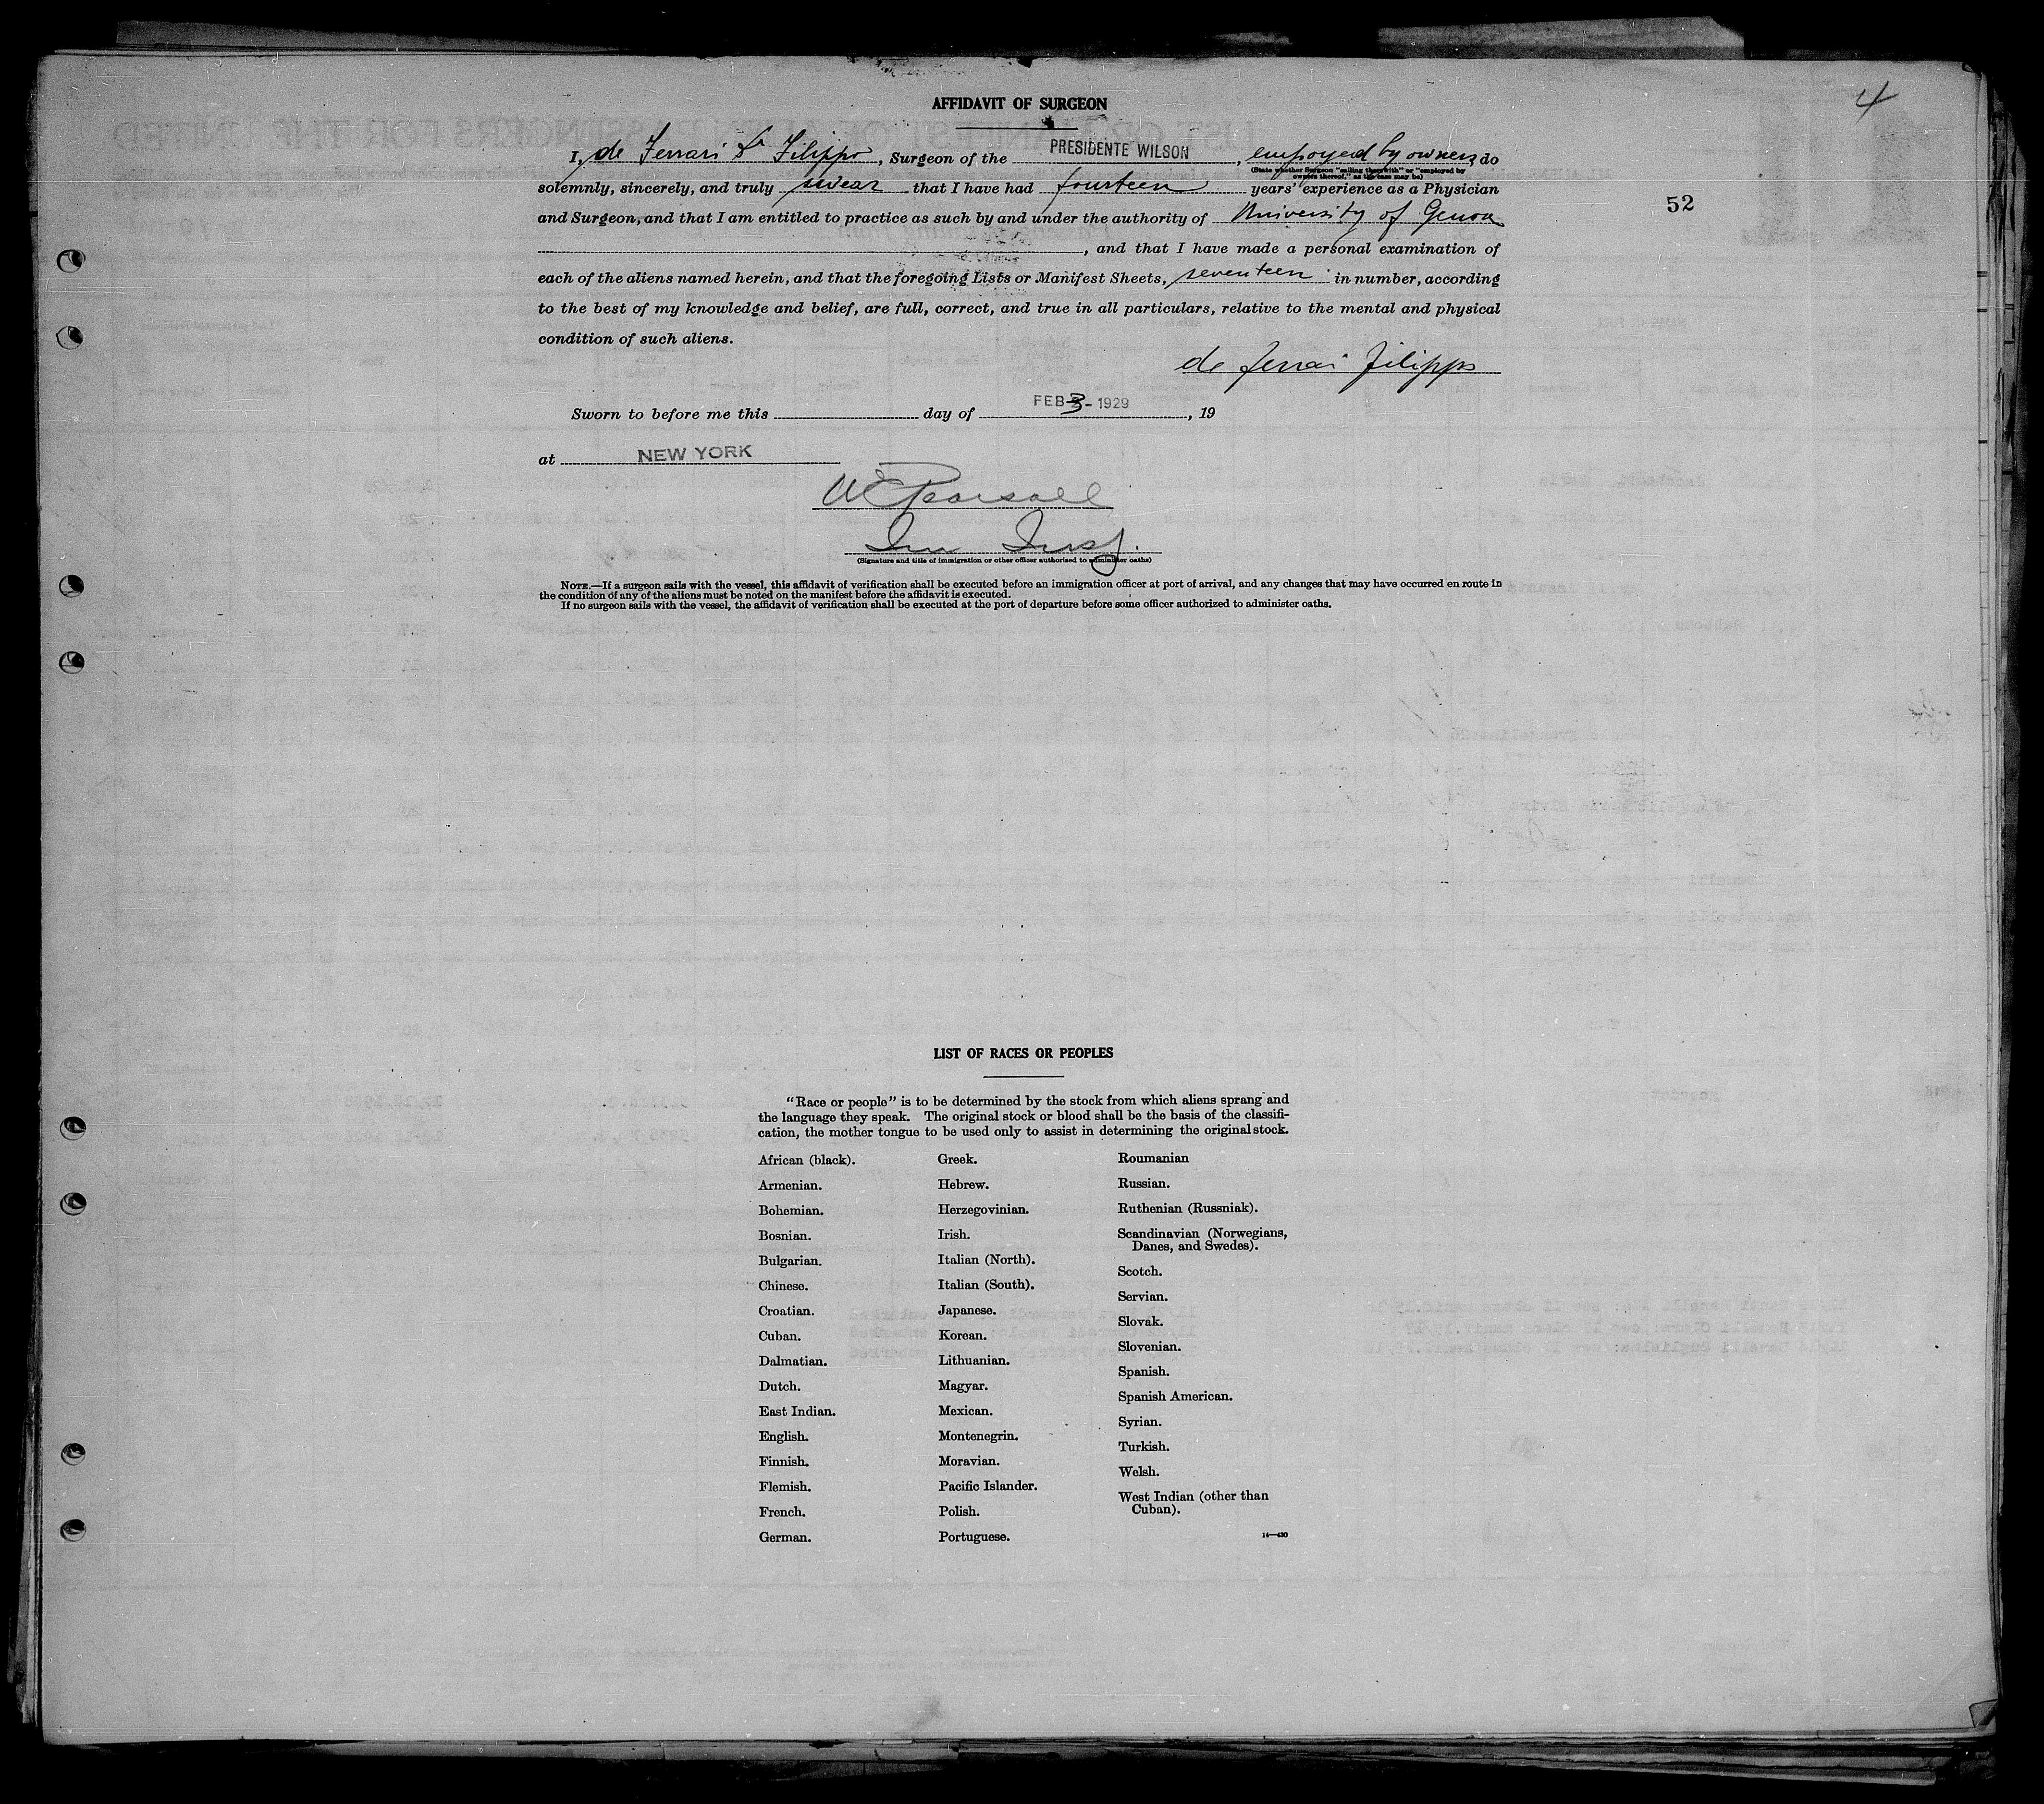 4
AFFIDAVIT OF SURGEON
I, de Ferrari Dr Filippo, Surgeon of the PRESIDENTE WILSON, employed by owners do
(State whether Surgeon "sailing therewith" or "employed by
owners thereof," as the case may be)
solemnly, sincerely, and truly swear that I have had fourteen years' experience as a Physician
and Surgeon, and that I am entitled to practice as such by and under the authority of University of Genoa
52
, and that I have made a personal examination of
each of the aliens named herein, and that the foregoing Lists or Manifest Sheets, seventeen in number, according
to the best of my knowledge and belief, are full, correct, and true in all particulars, relative to the mental and physical
condition of such aliens.
de Ferrari Filippo
Sworn to before me this day of FEB 3 - 1929, 19
at NEW YORK
W E Pearsall
Imm Insp.
(Signature and title of immigration or other officer authorized to administer oaths)
NOTE.—If a surgeon sails with the vessel, this affidavit of verification shall be executed before an immigration officer at port of arrival, and any changes that may have occurred en route in
the condition of any of the aliens must be noted on the manifest before the affidavit is executed.
If no surgeon sails with the vessel, the affidavit of verification shall be executed at the port of departure before some officer authorized to administer oaths.
LIST OF RACES OR PEOPLES
"Race or people" is to be determined by the stock from which aliens sprang and
the language they speak. The original stock or blood shall be the basis of the classifi-
cation, the mother tongue to be used only to assist in determining the original stock.
African (black).
Armenian.
Bohemian.
Bosnian.
Bulgarian.
Chinese.
Croatian.
Cuban.
Dalmatian.
Dutch.
East Indian.
English.
Finnish.
Flemish.
French.
German.
Greek.
Hebrew.
Herzegovinian.
Irish.
Italian (North).
Italian (South).
Japanese.
Korean.
Lithuanian.
Magyar.
Mexican.
Montenegrin.
Moravian.
Pacific Islander.
Polish.
Portuguese.
Roumanian
Russian.
Ruthenian (Russniak).
Scandinavian (Norwegians,
Danes, and Swedes).
Scotch.
Servian.
Slovak.
Slovenian.
Spanish.
Spanish American.
Syrian.
Turkish.
Welsh.
West Indian (other than
Cuban).
14—430